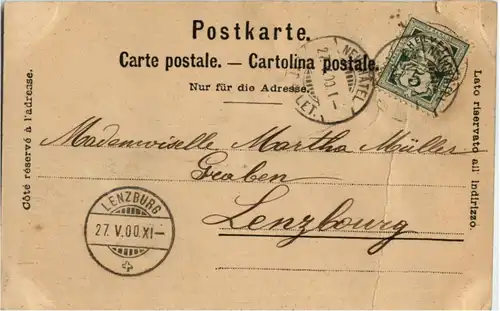 Postkarte.
Carte postale. — Cartolina postale.
Nur für die Adresse.
Côté réservé à l'adresse.
Lato riservato all' indirizzo.
5
NEUCHATEL
27.V.00.I–
LET.
Mademoiselle Martha Müller
Graben
Lenzbourg
LENZBURG
27.V.00.XI–